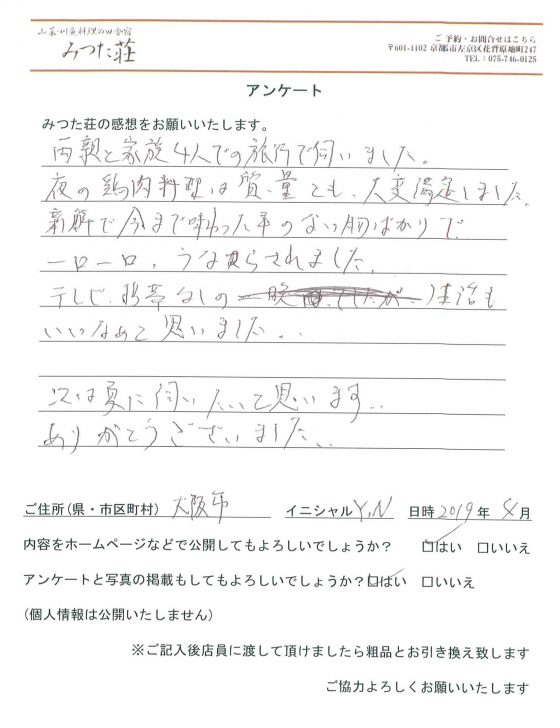 山菜・川魚料理の田舎宿
みつた荘
ご予約・お問合せはこちら
〒601-1102 京都市左京区花背原地町247
TEL:075-746-0125
アンケート
みつた荘の感想をお願いいたします。
両親と家族4人での旅行で伺いました。
夜の鶏肉料理は質・量とも、大変満足しました。
新鮮で今まで味わった事のない物ばかりで
一口一口、うならされました。
テレビ、携帯なしの 生活も
いいなあと思いました。
次は夏に伺いたいと思います。
ありがとうございました。
ご住所(県・市区町村) 大阪市 イニシャル Y.N 日時 2019年 4月
内容をホームページなどで公開してもよろしいでしょうか? ☑はい □いいえ
アンケートと写真の掲載もしてもよろしいでしょうか? ☑はい □いいえ
(個人情報は公開いたしません)
※ご記入後店員に渡して頂けましたら粗品とお引き換え致します
ご協力よろしくお願いいたします